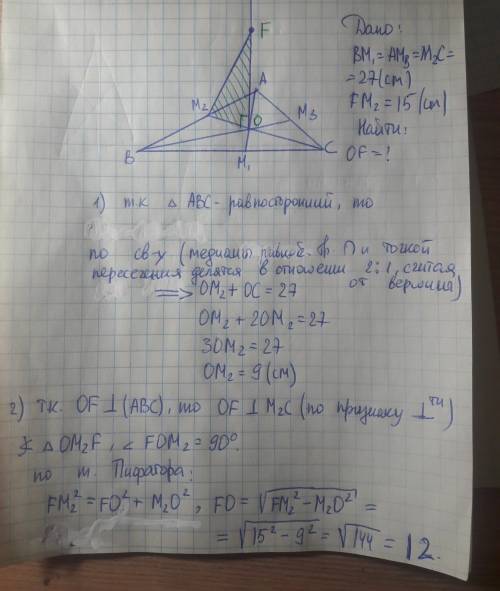 F
A
M₂
M₃
O
B
M₁
C
Дано:
BM₁ = AM₃ = M₂C =
= 27 (см)
FM₂ = 15 (см)
Найти:
OF = ?
1) т.к △ ABC - равносторонний, то
по св-у (медианы равноб. тр. ∩ и точкой
пересечения делятся в отношении 2:1, считая
от вершины)
⟹ OM₂ + OC = 27
OM₂ + 2OM₂ = 27
3OM₂ = 27
OM₂ = 9 (см)
2) т.к. OF ⊥ (ABC), то OF ⊥ M₂C (по признаку ⊥ᵗⁱ)
△ OM₂F, ∠ FOM₂ = 90°.
по т. Пифагора:
FM₂² = FO² + M₂O², FO = √(FM₂² − M₂O²) =
= √(15² − 9²) = √144 = 12.